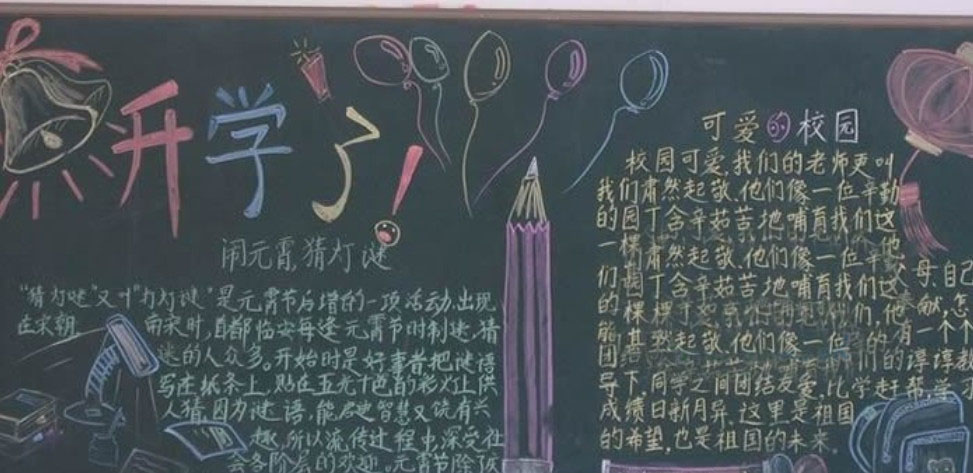 开学了!
闹元霄猜灯谜
"猜灯谜"又叫"打灯谜"是元霄节后增的一项活动,出现
在宋朝 南宋时,首都临安每逢元霄节时制迷,猜
迷的人众多。开始时是好事者把谜语
写在纸条上,贴在五光十色的彩灯上供
人猜,因为谜语,能启迪智慧又饶有兴
趣,所以流传过程中,深受社
会各阶层的欢迎。元霄节除
可爱的校园
校园可爱,我们的老师更叫
我们肃然起敬,他们像一位辛勤
的园丁含辛茹苦地哺育我们这
一棵肃然起敬,他们像一位辛 他
们 园丁含辛茹苦地哺育我们这 父母.自己
的棵 们,他 献,怎
能其然起敬,他们像一位 的有一个个
团结 们的谆谆教
导下,同学之间团结友爱,比学赶帮,学
成绩日新月异,这里是祖国
的希望,也是祖国的未来